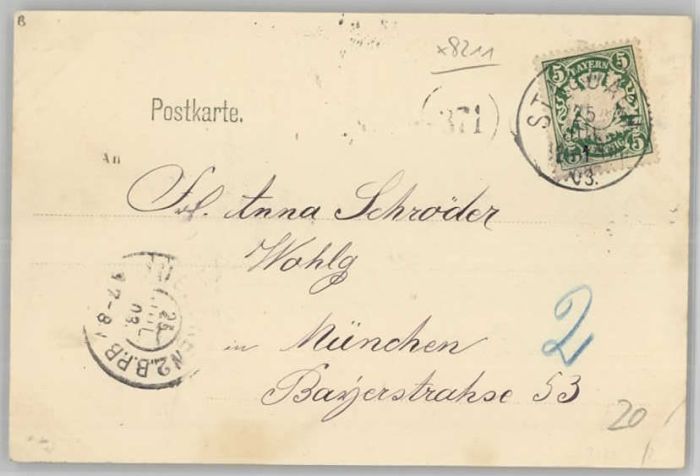 B
x8211
5 BAYERN 5
5 5
Postkarte.
371
25
JUL
03.
An
Frl. Anna Schröder
Wohlg
in München
Bayerstrahse 53
MÜNCHEN 2. B.P.B
25
JUL
03.
7-8
2
20